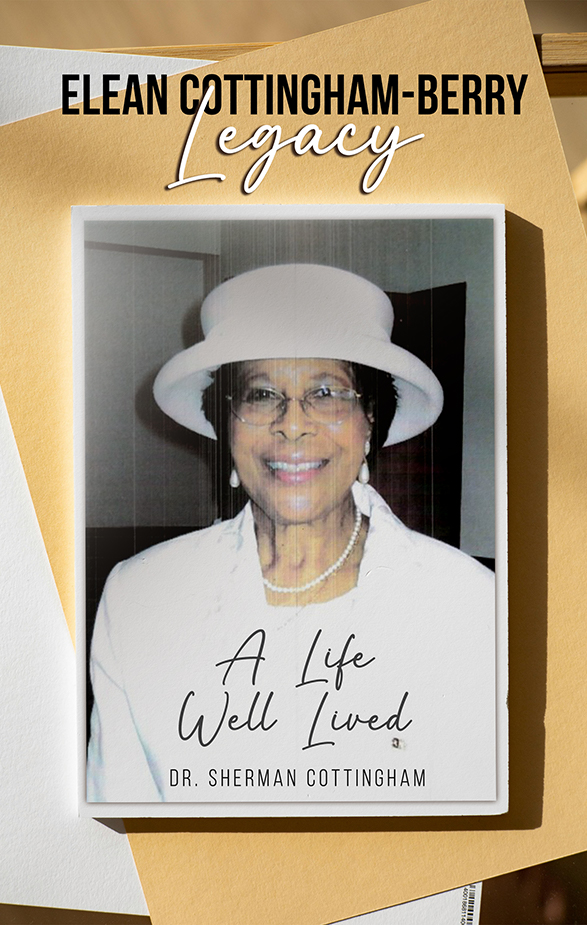 ELEAN COTTINGHAM-BERRY
Legacy
A Life
Well Lived
DR. SHERMAN COTTINGHAM